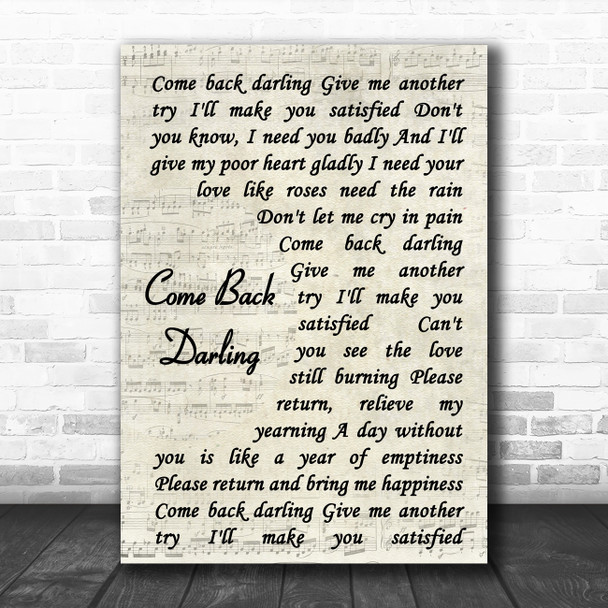 Come back darling Give me another
try I'll make you satisfied Don't
you know, I need you badly And I'll
give my poor heart gladly I need your
love like roses need the rain
Don't let me cry in pain
Come back darling
Give me another
try I'll make you
satisfied Can't
you see the love
still burning Please
return, relieve my
yearning A day without
you is like a year of emptiness
Please return and bring me happiness
Come back darling Give me another
try I'll make you satisfied
Come Back
Darling